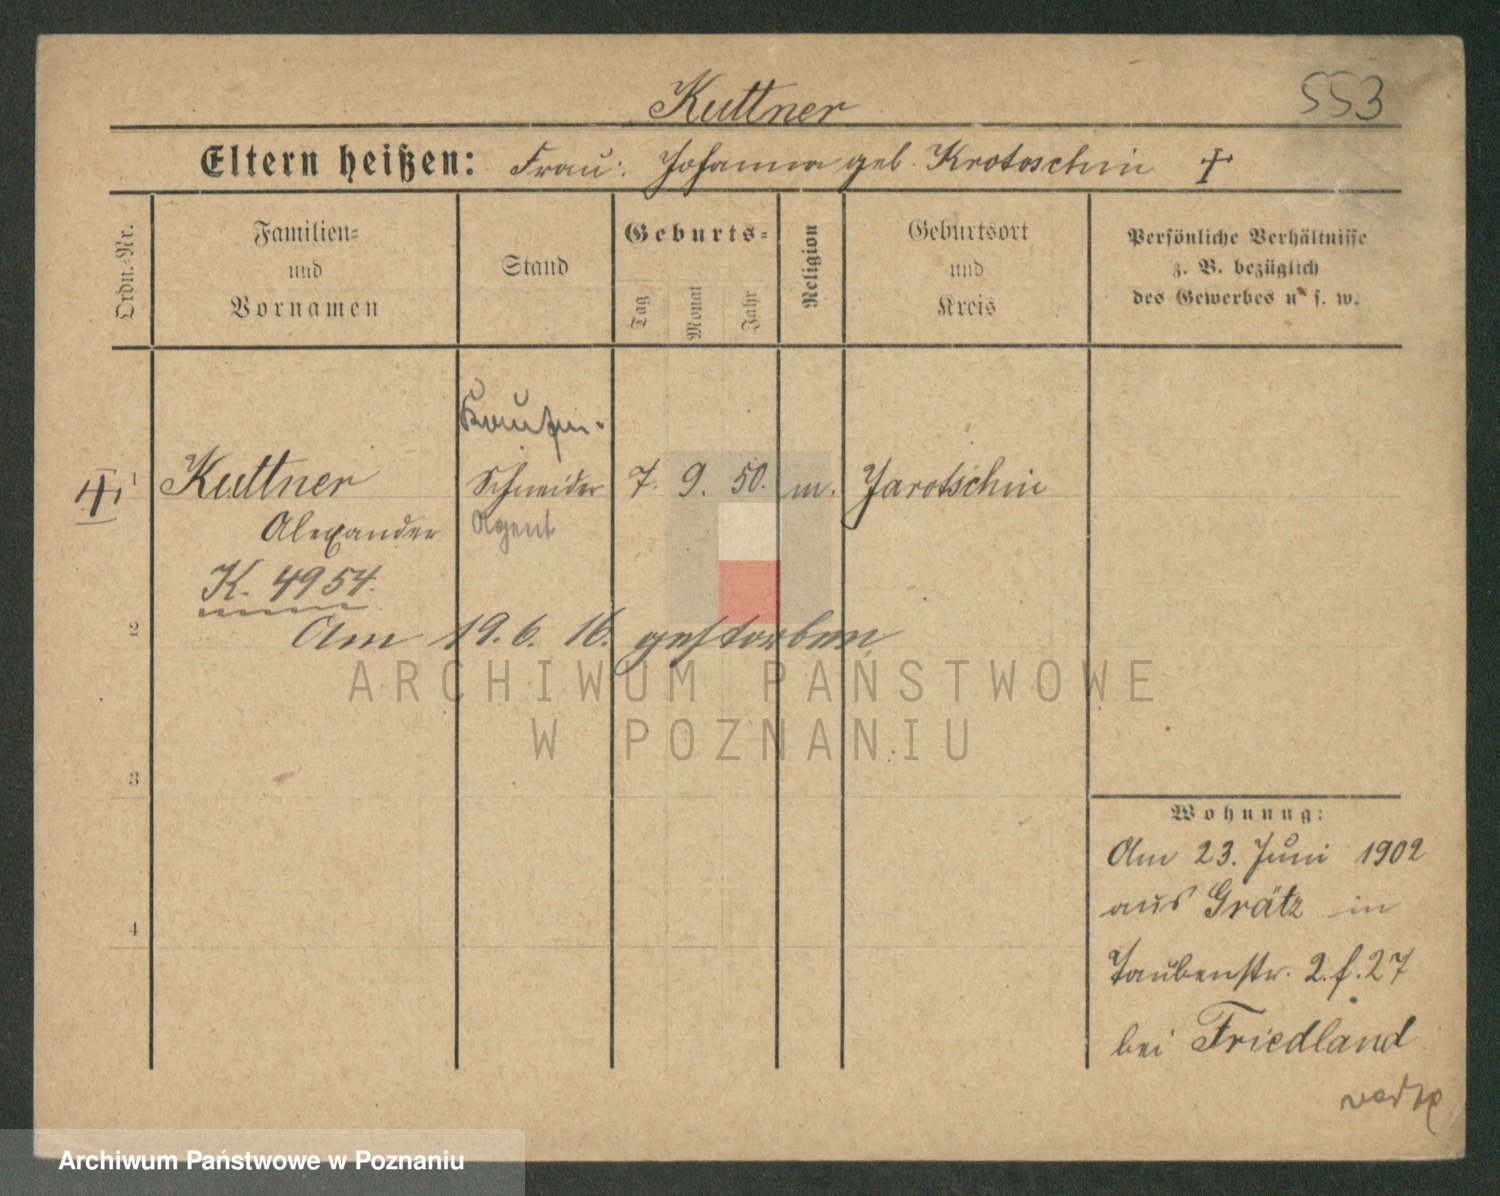 Kuttner
553
Eltern heißen: Frau: Johanna geb. Krotoschin †
Ordn.-Nr.
Familien-
und
Vornamen
Stand
Geburts-
Tag
Monat
Jahr
Religion
Geburtsort
und
Kreis
Persönliche Verhältnisse
z. B. bezüglich
des Gewerbes u. s. w.
1 Kuttner Schneider 7. 9. 50. m. Jarotschin
Alexander Agent
K. 4954.
2 Am 19. 6. 16. gestorben
ARCHIWUM PAŃSTWOWE
W POZNANIU
3
4
Wohnung:
Am 23. Juni 1902
aus Grätz in
Taubenstr. 2. f. 27
bei Friedland
Archiwum Państwowe w Poznaniu